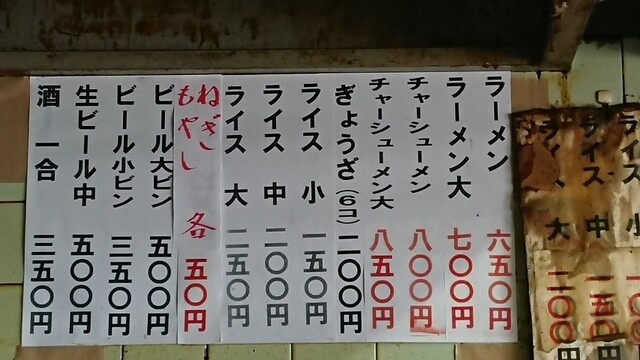 ラーメン 六五〇円
ラーメン大 七〇〇円
チャーシューメン 八〇〇円
チャーシューメン大 八五〇円
ぎょうざ(6コ) 二〇〇円
ライス 小 一五〇円
ライス 中 二〇〇円
ライス 大 二五〇円
ねぎ
もやし 各 五〇円
ビール大ビン 五〇〇円
ビール小ビン 三五〇円
生ビール中 五〇〇円
酒 一合 三五〇円
ライス 小 一〇〇円
ライス 中 一五〇円
ライス 大 二〇〇円